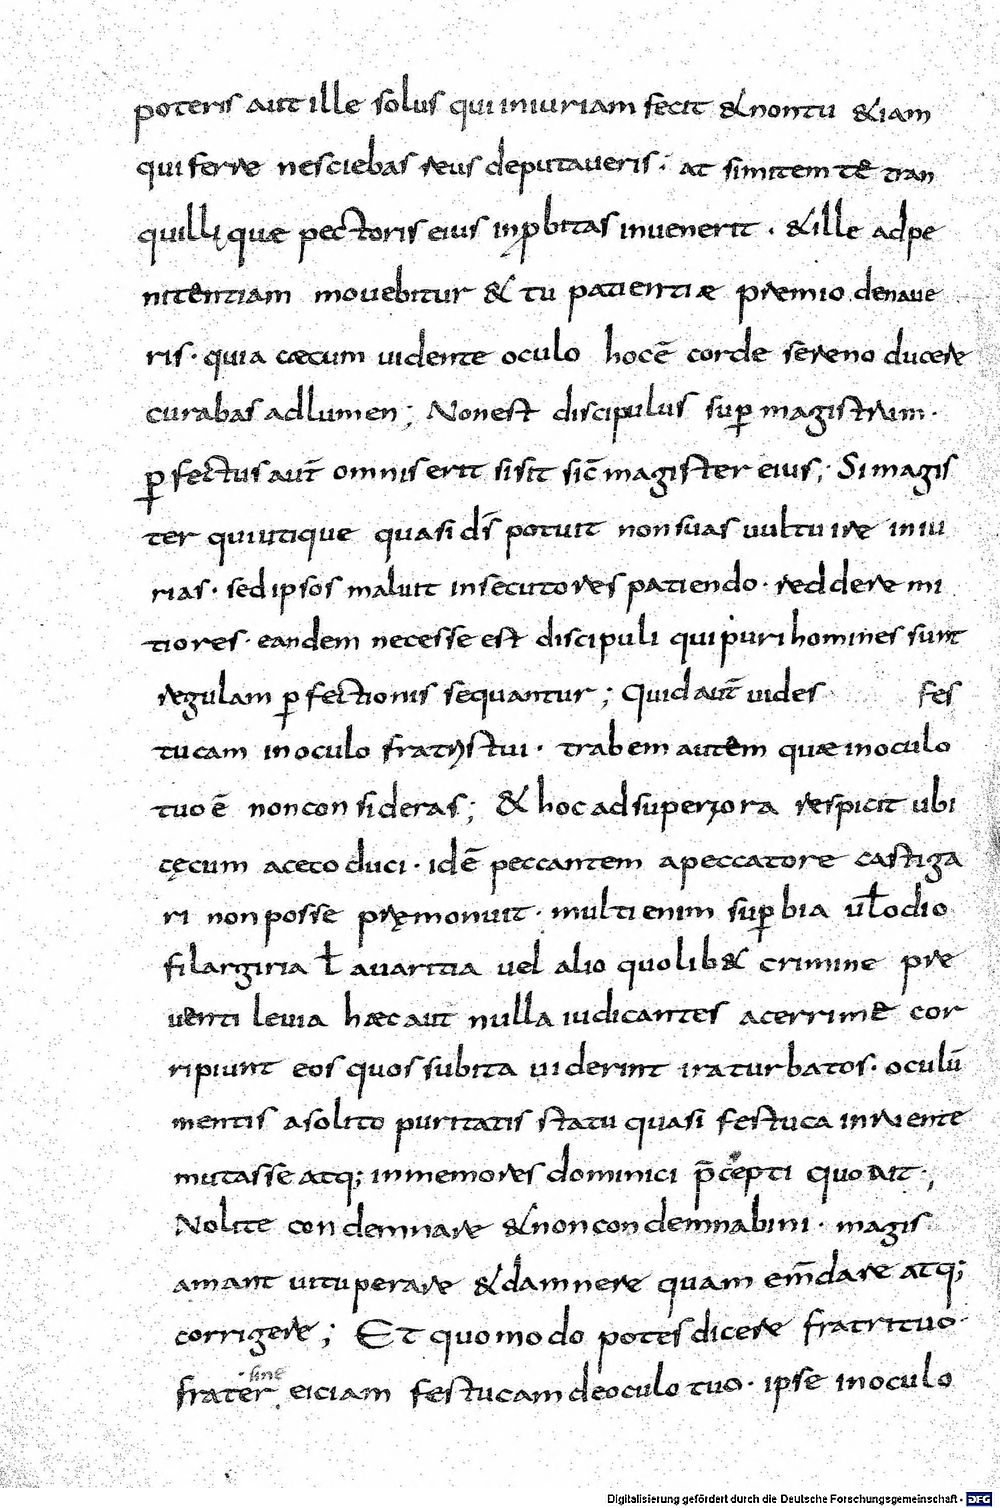 poteris aut ille solus qui iniuriam fecit & non tu &iam
qui ferre nesciebas reus deputaveris · at si mitem tē tran
quillique pectoris eius inprobitas invenerit · & ille ad pe
nitentiam movebitur & tu patientiæ premio
ris · quia cæcum vidente oculo hoc ē corde sereno ducere
curabas ad lumen ; Non est discipulus sup magistrum ·
pfectus aut̄ omnis erit si sit sic̄ magister eius ; Si magis
ter qui utique quasi ds̄ potuit non suas vult uire iniu
rias · sed ipsos maluit insecutores patiendo · reddere mi
tiores · eandem necesse est discipuli qui puri homines sunt
regulam pfectionis sequantur ; Quid aut̄ vides fes
tucam in oculo fratris tui · trabem autem quæ in oculo
tuo ē non consideras ; & hoc ad superiora respicit ubi
cęcum a ceco duci · idē peccantem a peccatore castiga
ri non posse pręmonuit · multi enim supbia ul̄ odio
filargiria l̄ avaritia vel alio quolib& crimine pre
venti levia hæc aut nulla iudicantes acerrime cor
ripiunt eos quos subita viderint ira turbatos · oculū
mentis a solito puritatis statu quasi festuca inruente
mutasse atq; inmemores dominici p̄cepti quo ait ;
Nolite condemnare & non condemnabini · magis
amant vituperare & damnere quam em̄dare atq;
corrigere ; Et quomodo potes dicere fratri tuo ·
frater sine eiciam festucam de oculo tuo · ipse in oculo
Digitalisierung gefördert durch die Deutsche Forschungsgemeinschaft - DFG